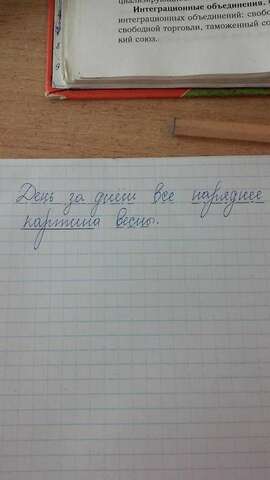 Интеграционные объединения.
интеграционных объединений: свобо
свободной торговли, таможенный со
кий союз.
День за днем все наряднее
картина весны.